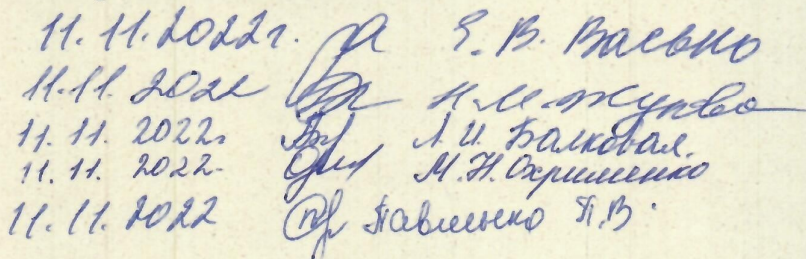 11.11.2022г. Е.В. Васько
11.11.2022 Н.М. Жукова
11.11.2022г. Л.И. Балковая.
11.11.2022. М.Н. Охрименко
11.11.2022 Павленко П.В.